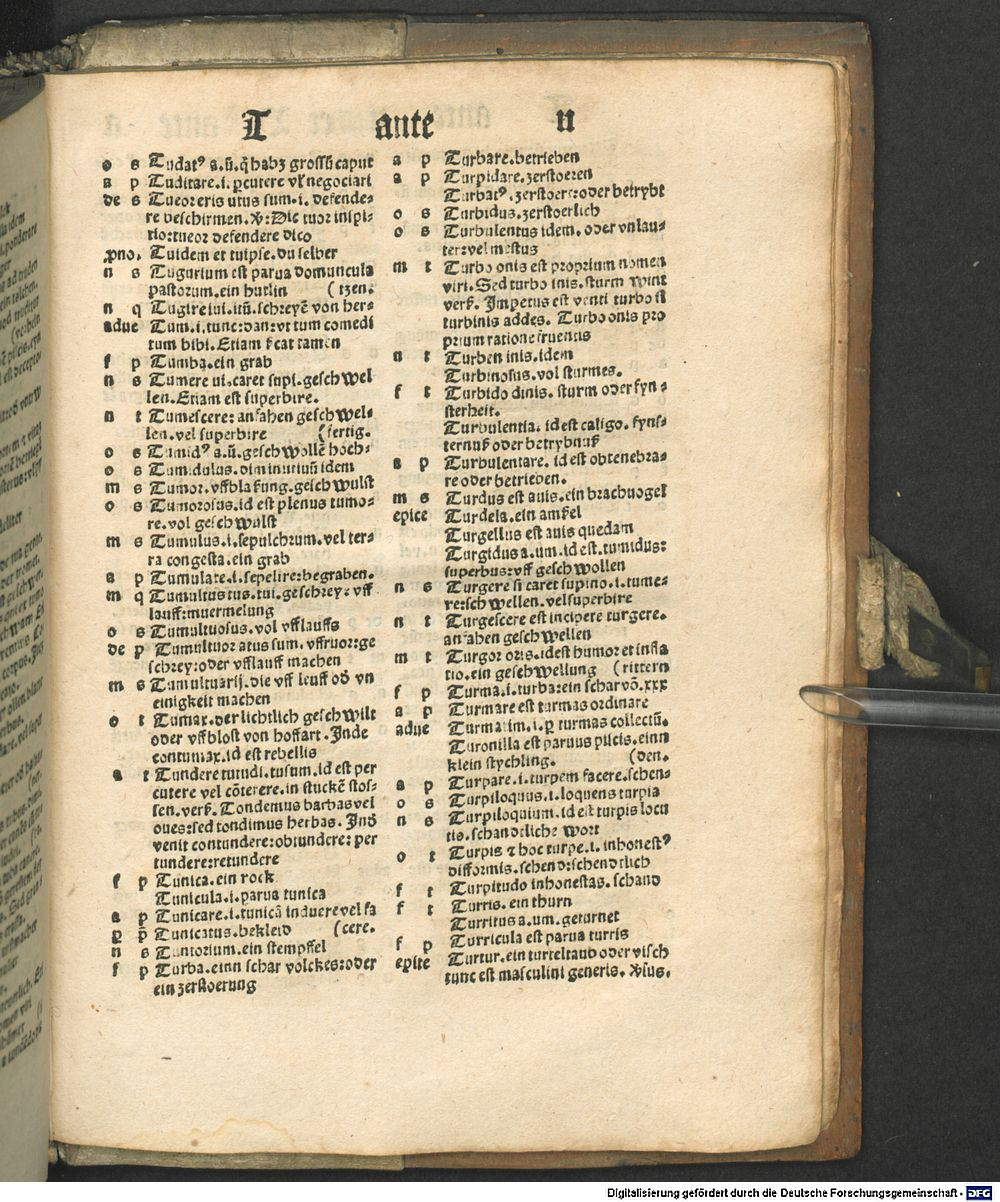 T ante u
o s Tudatꝰ a.ū.q̄ habꝫ grossū caput
a p Tuditare.i.ꝑcutere vł negociari
de s Tueor eris utus sum.i.defende-
re beschirmen.Ꝟ:Dic tuor inspi-
tio:tueor defendere dico
ꝓno. Tuidem et tuipse.du selber
n s Tugurium est parua domuncula
pastorum.ein hutlin (tzen.
n q Tugire iui.itū.schreyē von her-
adue Tum.i.tunc:dan:vt tum comedi
tum bibi.Etiam ſcat tamen
f p Tumba.ein grab
n s Tumere ui.caret supi.geschwel
len.Etiam est superbire.
n t Tumescere:anfahen geschwel-
len.vel superbire (fertig.
o s Tumidꝰ a.ū.geschwollē hoch-
o s Tumidulus.diminutiuū idem
m s Tumor.vffblaſung.geschwulst
o s Tumorosus.id est plenus tumo-
re.vol geschwulst
m s Tumulus.i.sepulchrum.vel ter-
ra congesta.ein grab
a p Tumulare.i.sepelire:begraben.
m q Tumultus tus.tui.geschrey:vff
lauff:muermelung
o s Tumultuosus.vol vfflauffs
de p Tumultuor atus sum.vffruor:ge
schrey:oder vfflauff machen
m s Tumultuarij.die vff leuff od̄ vn
einigkeit machen
o t Tumax.der lichtlich geschwilt
oder vffblost von hoffart.Inde
contumax.id est rebellis
a t Tundere tutudi.tusum.id est per
cutere vel cōterere.in stuckē stos-
sen.verſ.Tondemus barbas vel
oues:sed tondimus herbas.Ind̄
venit contundere:obtundere:per
tundere:retundere
f p Tunica.ein rock
Tunicula.i.parua tunica
a p Tunicare.i.tunicā induere vel fa
p̄ p̄ Tunicatus.bekleid (cere.
n s Tuntorium.ein stempffel
f p Turba.einn schar volckes:oder
ein zerstoerung
a p Turbare.betrieben
a p Turpidare.zerstoeren
Turbatꝰ.zerstoert:oder betrybt
o s Turbidus.zerstoerlich
o s Turbulentus idem.oder vnlau-
ter:vel mestus
m t Turbo onis est proprium nomen
viri.Sed turbo inis.sturm wint
verſ.Impetus est venti turbo si
turbinis addes.Turbo onis pro
prium ratione fruentis
n t Turben inis.idem
Turbinosus.vol sturmes.
f t Turbido dinis.sturm oder fyn-
sterheit.
Turbulentia.id est caligo.fyns-
ternuß oder betrybnuß
a p Turbulentare.id est obtenebra-
re oder betrieben.
m s Turdus est auis.ein brachuogel
epice Turdela.ein amsel
Turgellus est auis quedam
Turgidus a.um.id est.tumidus:
superbus:vff geschwollen
n s Turgere si caret supino.i.tume-
re:schwellen.vel superbire
n t Turgescere est incipere turgere.
anfahen geschwellen
m t Turgor oris.idest humor et infla
tio.ein geschwellung (rittern
f p Turma.i.turba:ein schar vō.xxx
a p Turmare est turmas ordinare
adue Turmatim.i.ꝑ turmas collectū.
Turonilla est paruus piscis.einn
klein stychling. (den.
a p Turpare.i.turpem facere.schen-
o s Turpiloquus.i.loquens turpia
n s Turpiloquium.id est turpis locu
tis.schandtliche wort
o t Turpis ⁊ hoc turpe.i.inhonestꝰ
difformis.schend:schendtlich
f t Turpitudo inhonestas.schand
f t Turris.ein thurn
Turritus a.um.geturnet
f p Turricula est parua turris
epite Turtur.ein turteltaub oder visch
tunc est masculini generis.Ꝟsus.
Digitalisierung gefördert durch die Deutsche Forschungsgemeinschaft - DFG